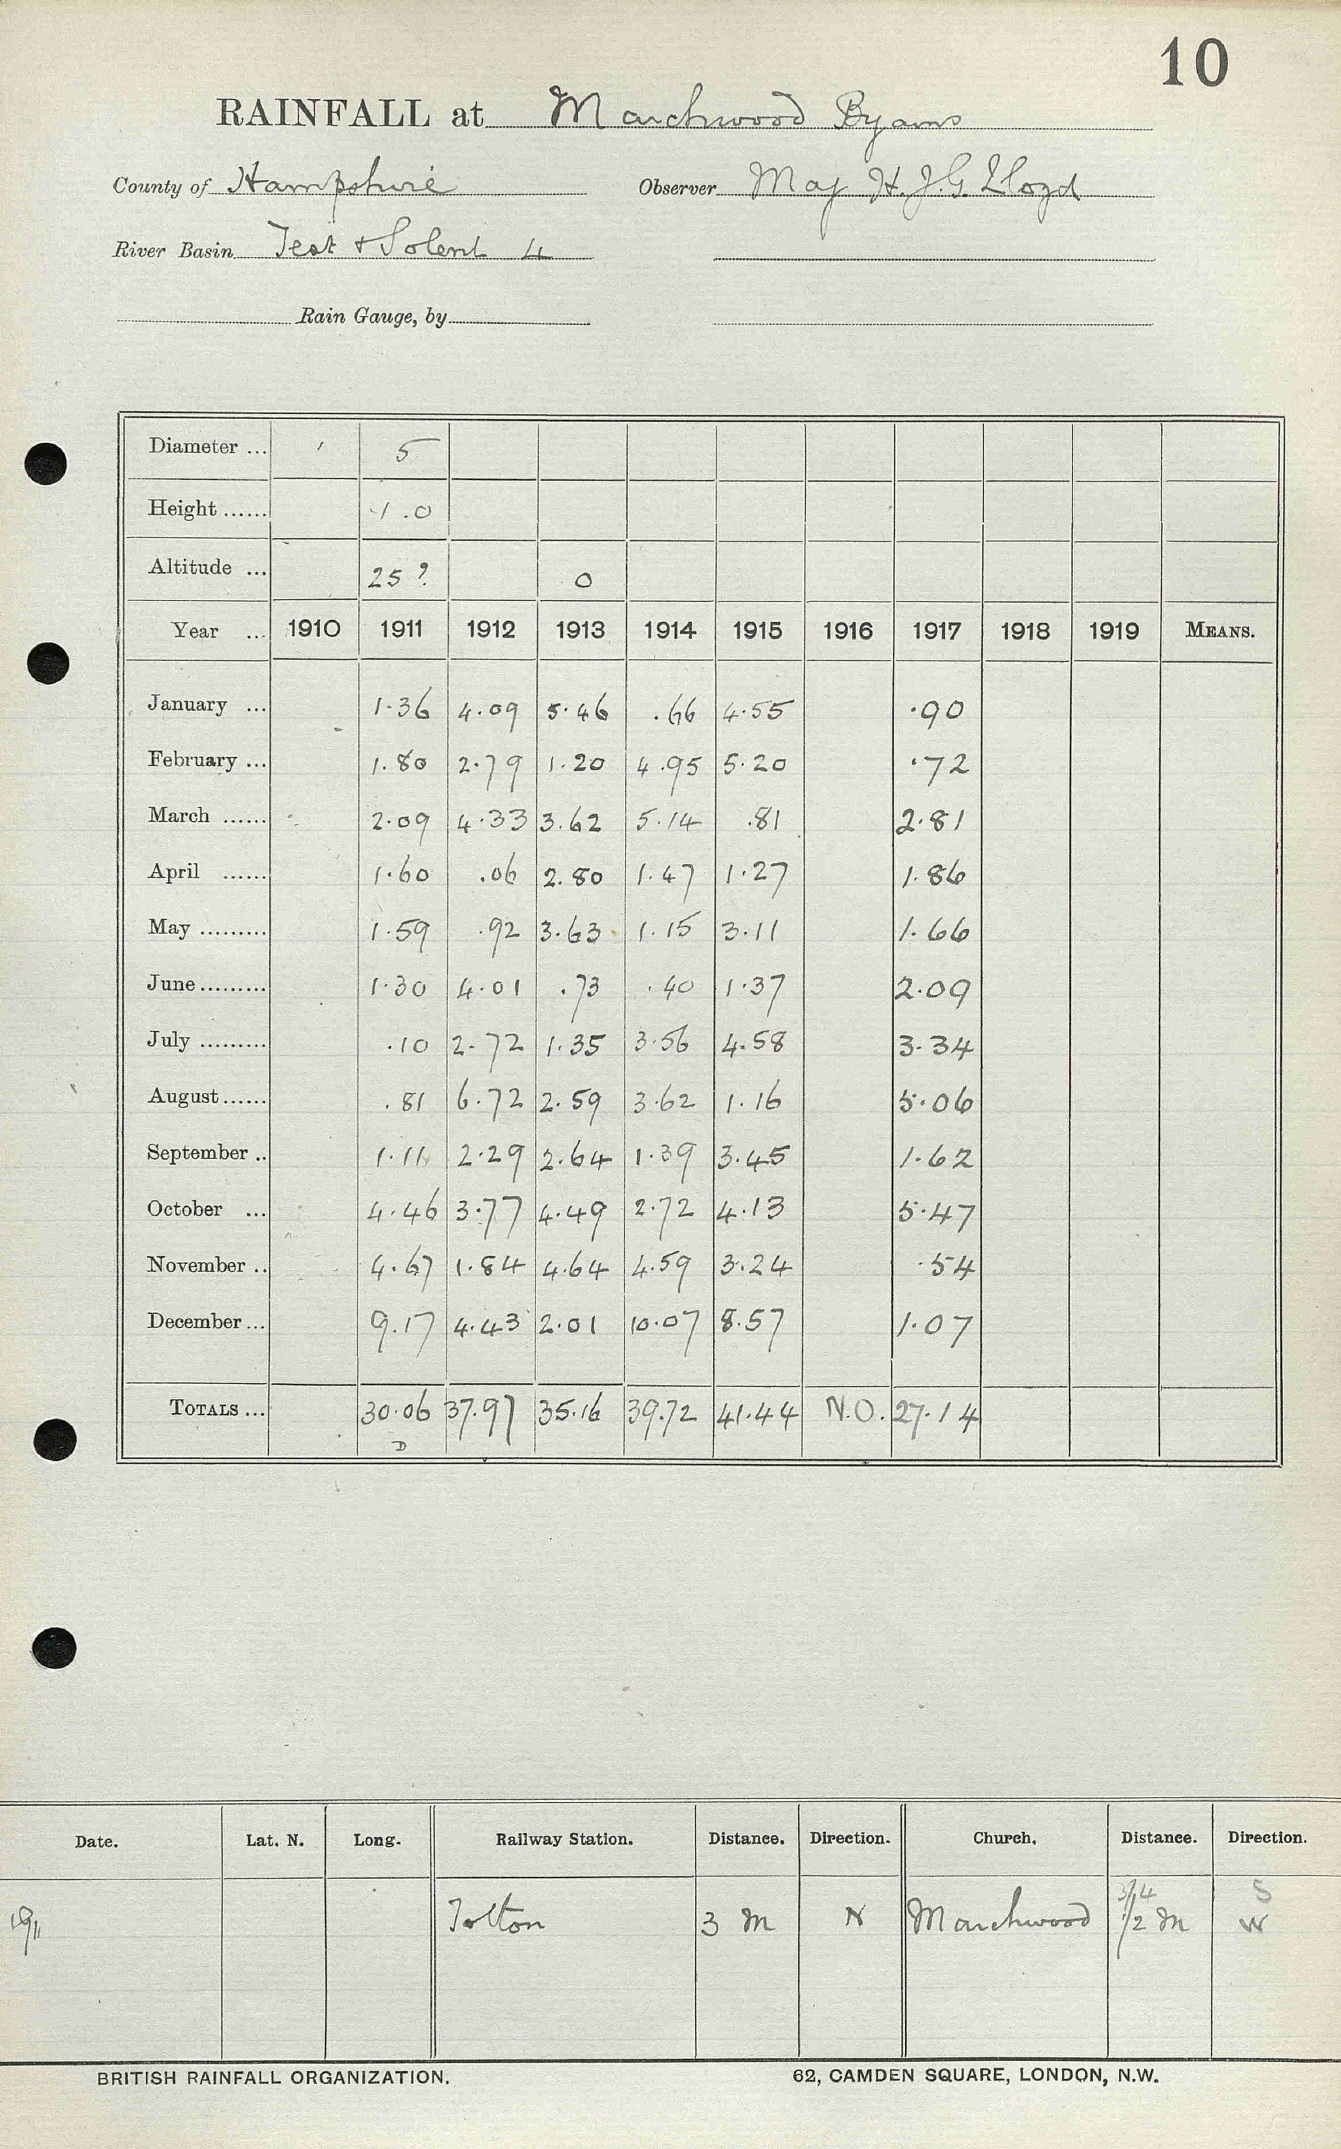 10
RAINFALL at Marchwood Byams
County of Hampshire Observer Maj H. J. G. Lloyd
River Basin Test & Solent 4
Rain Gauge, by
Diameter ... 5
Height ...... 1.0
Altitude ... 25? 0
Year ... 1910 1911 1912 1913 1914 1915 1916 1917 1918 1919 MEANS.
January ... 1.36 4.09 5.46 .66 4.55 .90
February ... 1.80 2.79 1.20 4.95 5.20 .72
March ...... 2.09 4.33 3.62 5.14 .81 2.81
April ...... 1.60 .06 2.80 1.47 1.27 1.86
May ......... 1.59 .92 3.63 1.15 3.11 1.66
June ......... 1.30 4.01 .73 .40 1.37 2.09
July ......... .10 2.72 1.35 3.56 4.58 3.34
August ...... .81 6.72 2.59 3.62 1.16 5.06
September .. 1.11 2.29 2.64 1.39 3.45 1.62
October ... 4.46 3.77 4.49 2.72 4.13 5.47
November .. 4.67 1.84 4.64 4.59 3.24 .54
December ... 9.17 4.43 2.01 10.07 8.57 1.07
TOTALS ... 30.06 37.97 35.16 39.72 41.44 N.O. 27.14
D
Date. Lat. N. Long. Railway Station. Distance. Direction. Church. Distance. Direction.
3/4 S
1911 Totton 3 M N Marchwood 1/2 M W
BRITISH RAINFALL ORGANIZATION. 62, CAMDEN SQUARE, LONDON, N.W.